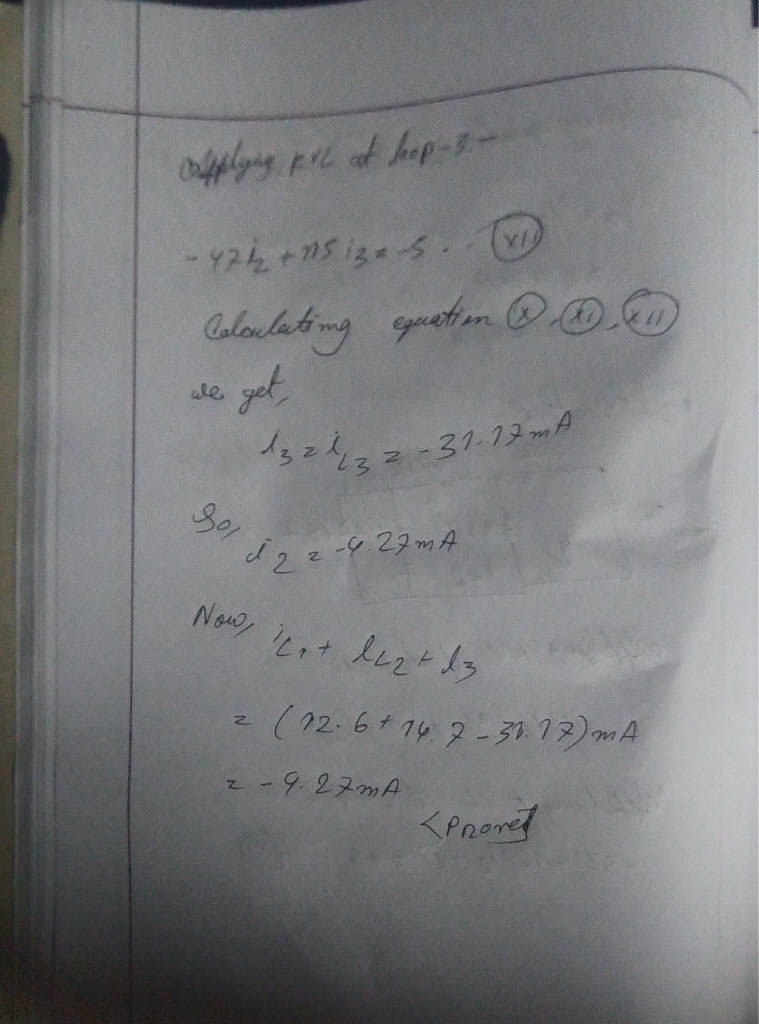 Applying KVL at loop-3:-
-47i₂ + 115 i₃ = -5 .. (XII)
Calculating equation (X), (XI), (XII)
we get,
i₃ = i_L3 = -31.17mA
So,
i₂ = -4.27mA
Now, i_L1 + i_L2 + i₃
= (12.6 + 14.7 - 31.17)mA
= -4.27mA
<Proved]